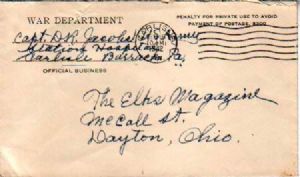 WAR DEPARTMENT
PENALTY FOR PRIVATE USE TO AVOID
PAYMENT OF POSTAGE, $300
Capt. D.R. Jacobs
Station Hospital
Carlisle Barracks, Pa.
OFFICIAL BUSINESS
CARLISLE
1942
The Elks Magazine
McCall St.
Dayton, Ohio.